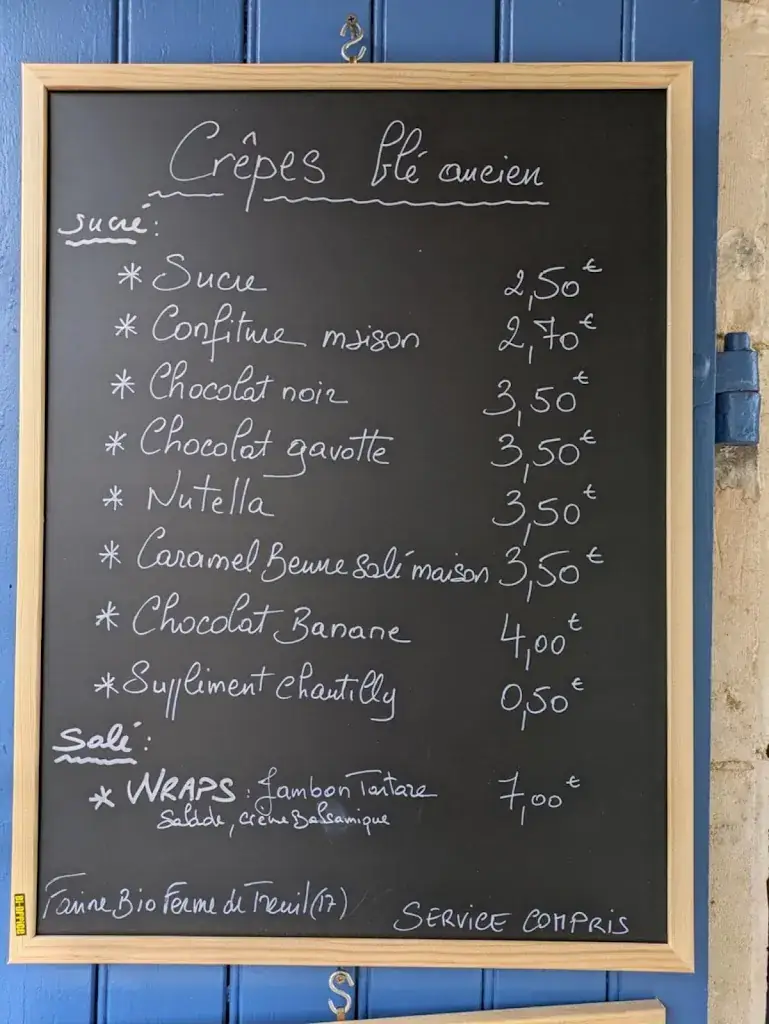 Crêpes blé ancien
sucré:
* Sucre 2,50€
* Confiture maison 2,70€
* Chocolat noir 3,50€
* Chocolat gavotte 3,50€
* Nutella 3,50€
* Caramel Beurre salé maison 3,50€
* Chocolat Banane 4,00€
* Suppliment chantilly 0,50€
Salé:
* WRAPS: Jambon Tartare 7,00€
Salade, crème Balsamique
Farine Bio Ferme de Treuil (17)
SERVICE COMPRIS